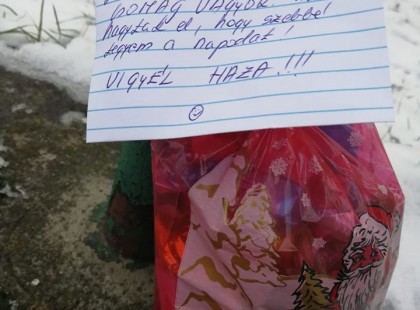 CSOMAG VAGYOK
hagytak el, hogy szebbé
tegyem a napodat!
VIGYÉL HAZA!!!